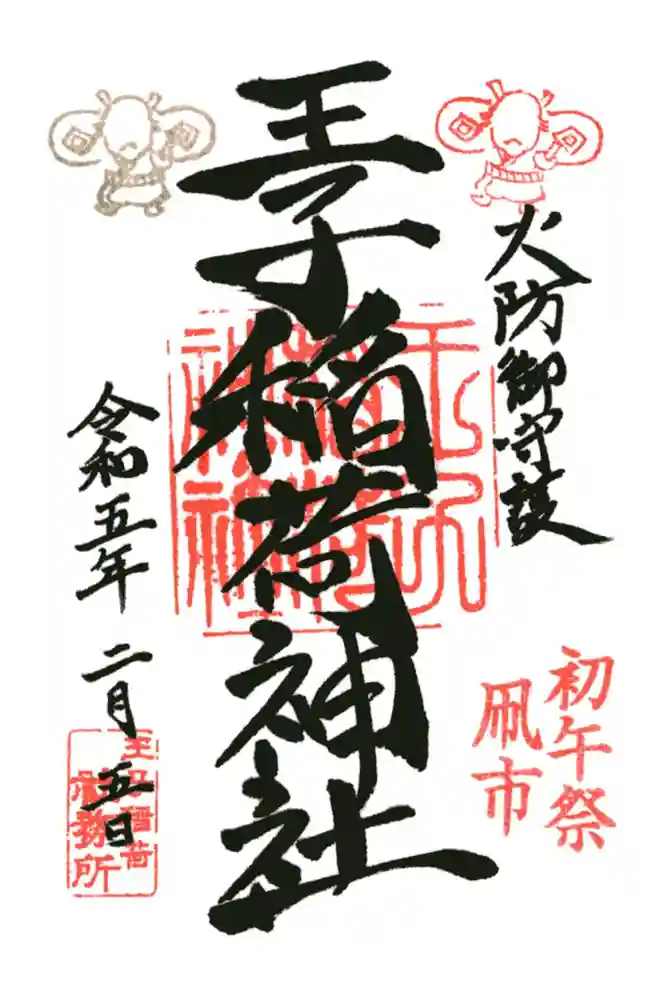 火防御守護
初午祭
凧市
王子稲荷神社
王子稲荷神社
令和五年 二月 五日
王子稲荷
社務所